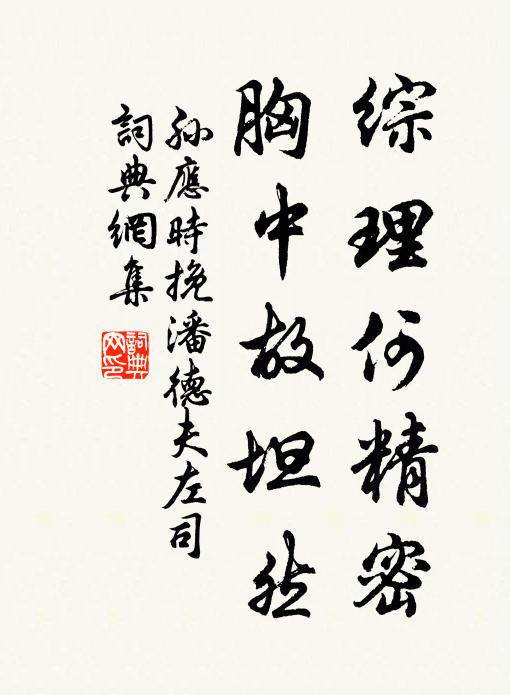 綜理何精密
胸中故坦然
孫應時挽潘德夫左司
詞典網集
詞典網印